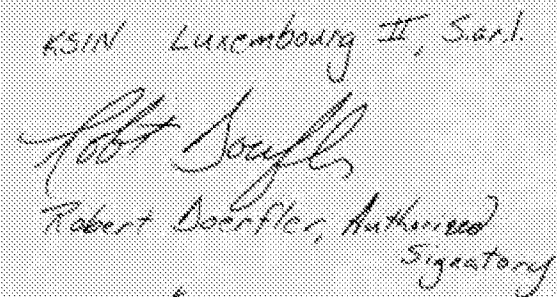 KSIN Luxembourg II, S.ar.l.
Robt Doerfler
Robert Doerfler, Authorized
Signatory